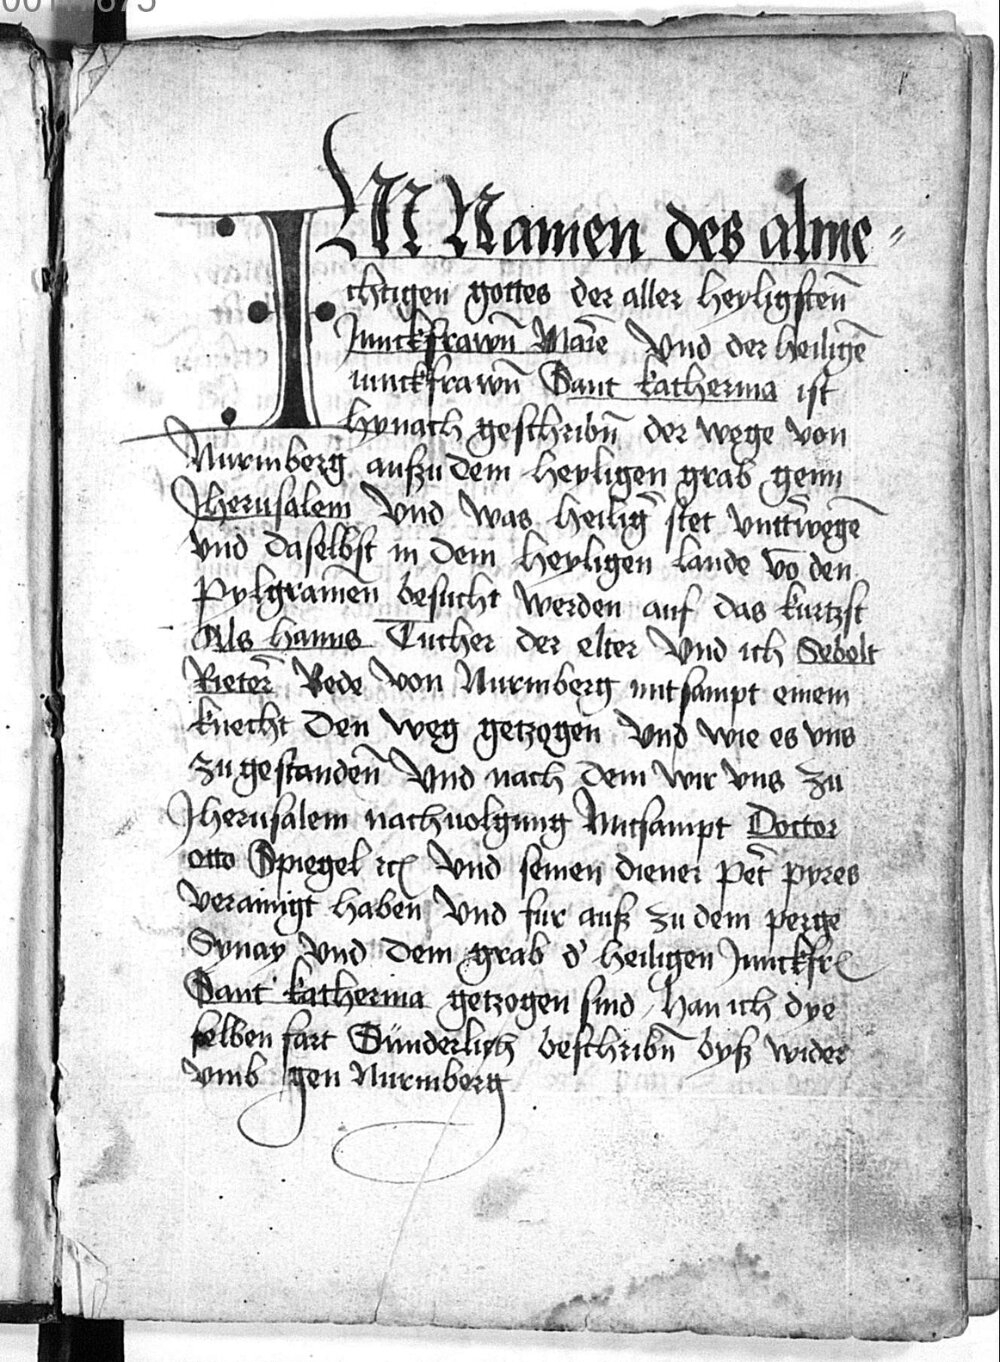 IM Namen des alme-
chtigen gottes der aller heyligsten̄
Junckfrawn̄ Marie Vnd der heiligē
iunckfrawn̄ Sant katherina ist
hynach geschribn̄ der wege von
Nurmberg auszu dem heyligen grab genn
Jherusalem Vnd was heilig stet vnttwegē
vnd daselbst in dem heyligen lande vō den
Pylgramen̄ besucht werden auf das kurtzst
Als hanns Tucher der elter Vnd ich Sebolt
Rieter Bede von Nurmberg mitsampt einem
knecht den weg getzogen Vnd wie es vns
zugestanden̄ Vnd nach dem wir vns zu
Jherusalem nachuolgung Mitsampt Doctor
otto Spiegel rc Vnd seinen diener Pet̄ pyres
verainigt haben Vnd fur auß zu dem perge
Synay Vnd dem grab d' heiligen Junckfr
Sant katherina getzogen sind / Han ich dye
selben fart Sünderlich beschribn̄ byß wider
vmb gen Nurmberg